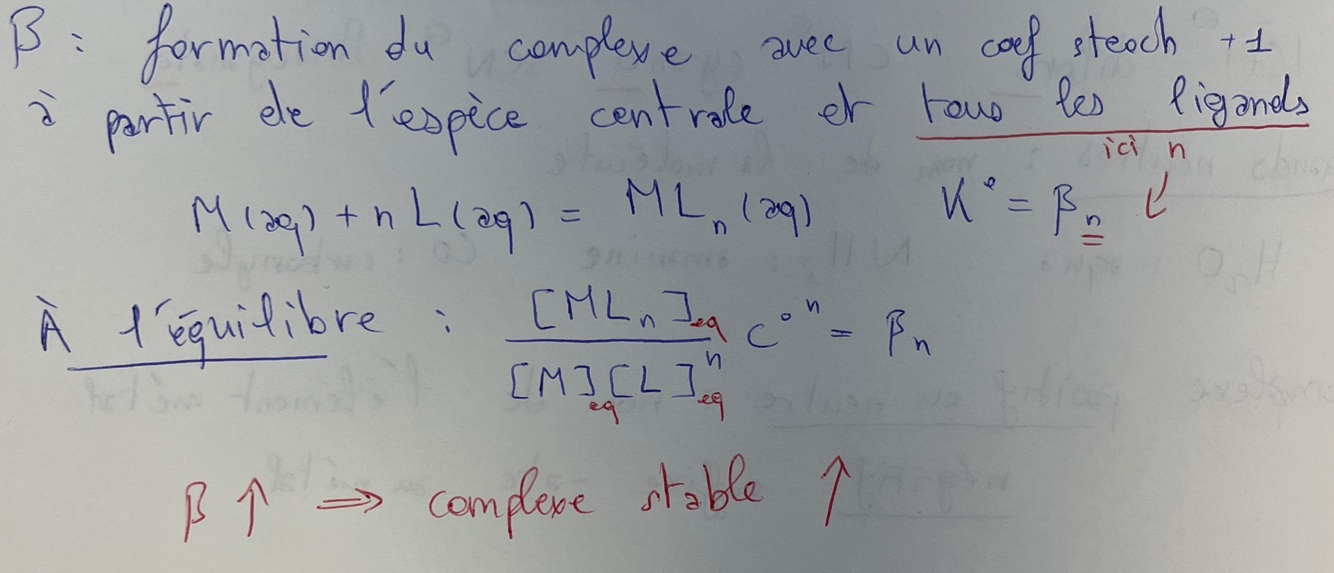 β : formation du complexe avec un coef steoch +1
à partir de l'espèce centrale et tous les ligands
ici n
M(aq) + n L(aq) = MLₙ(aq) K° = βₙ
À l'équilibre : [MLₙ]eq / [M]eq [L]eqⁿ C°ⁿ = βₙ
β ↑ ⇒ complexe stable ↑